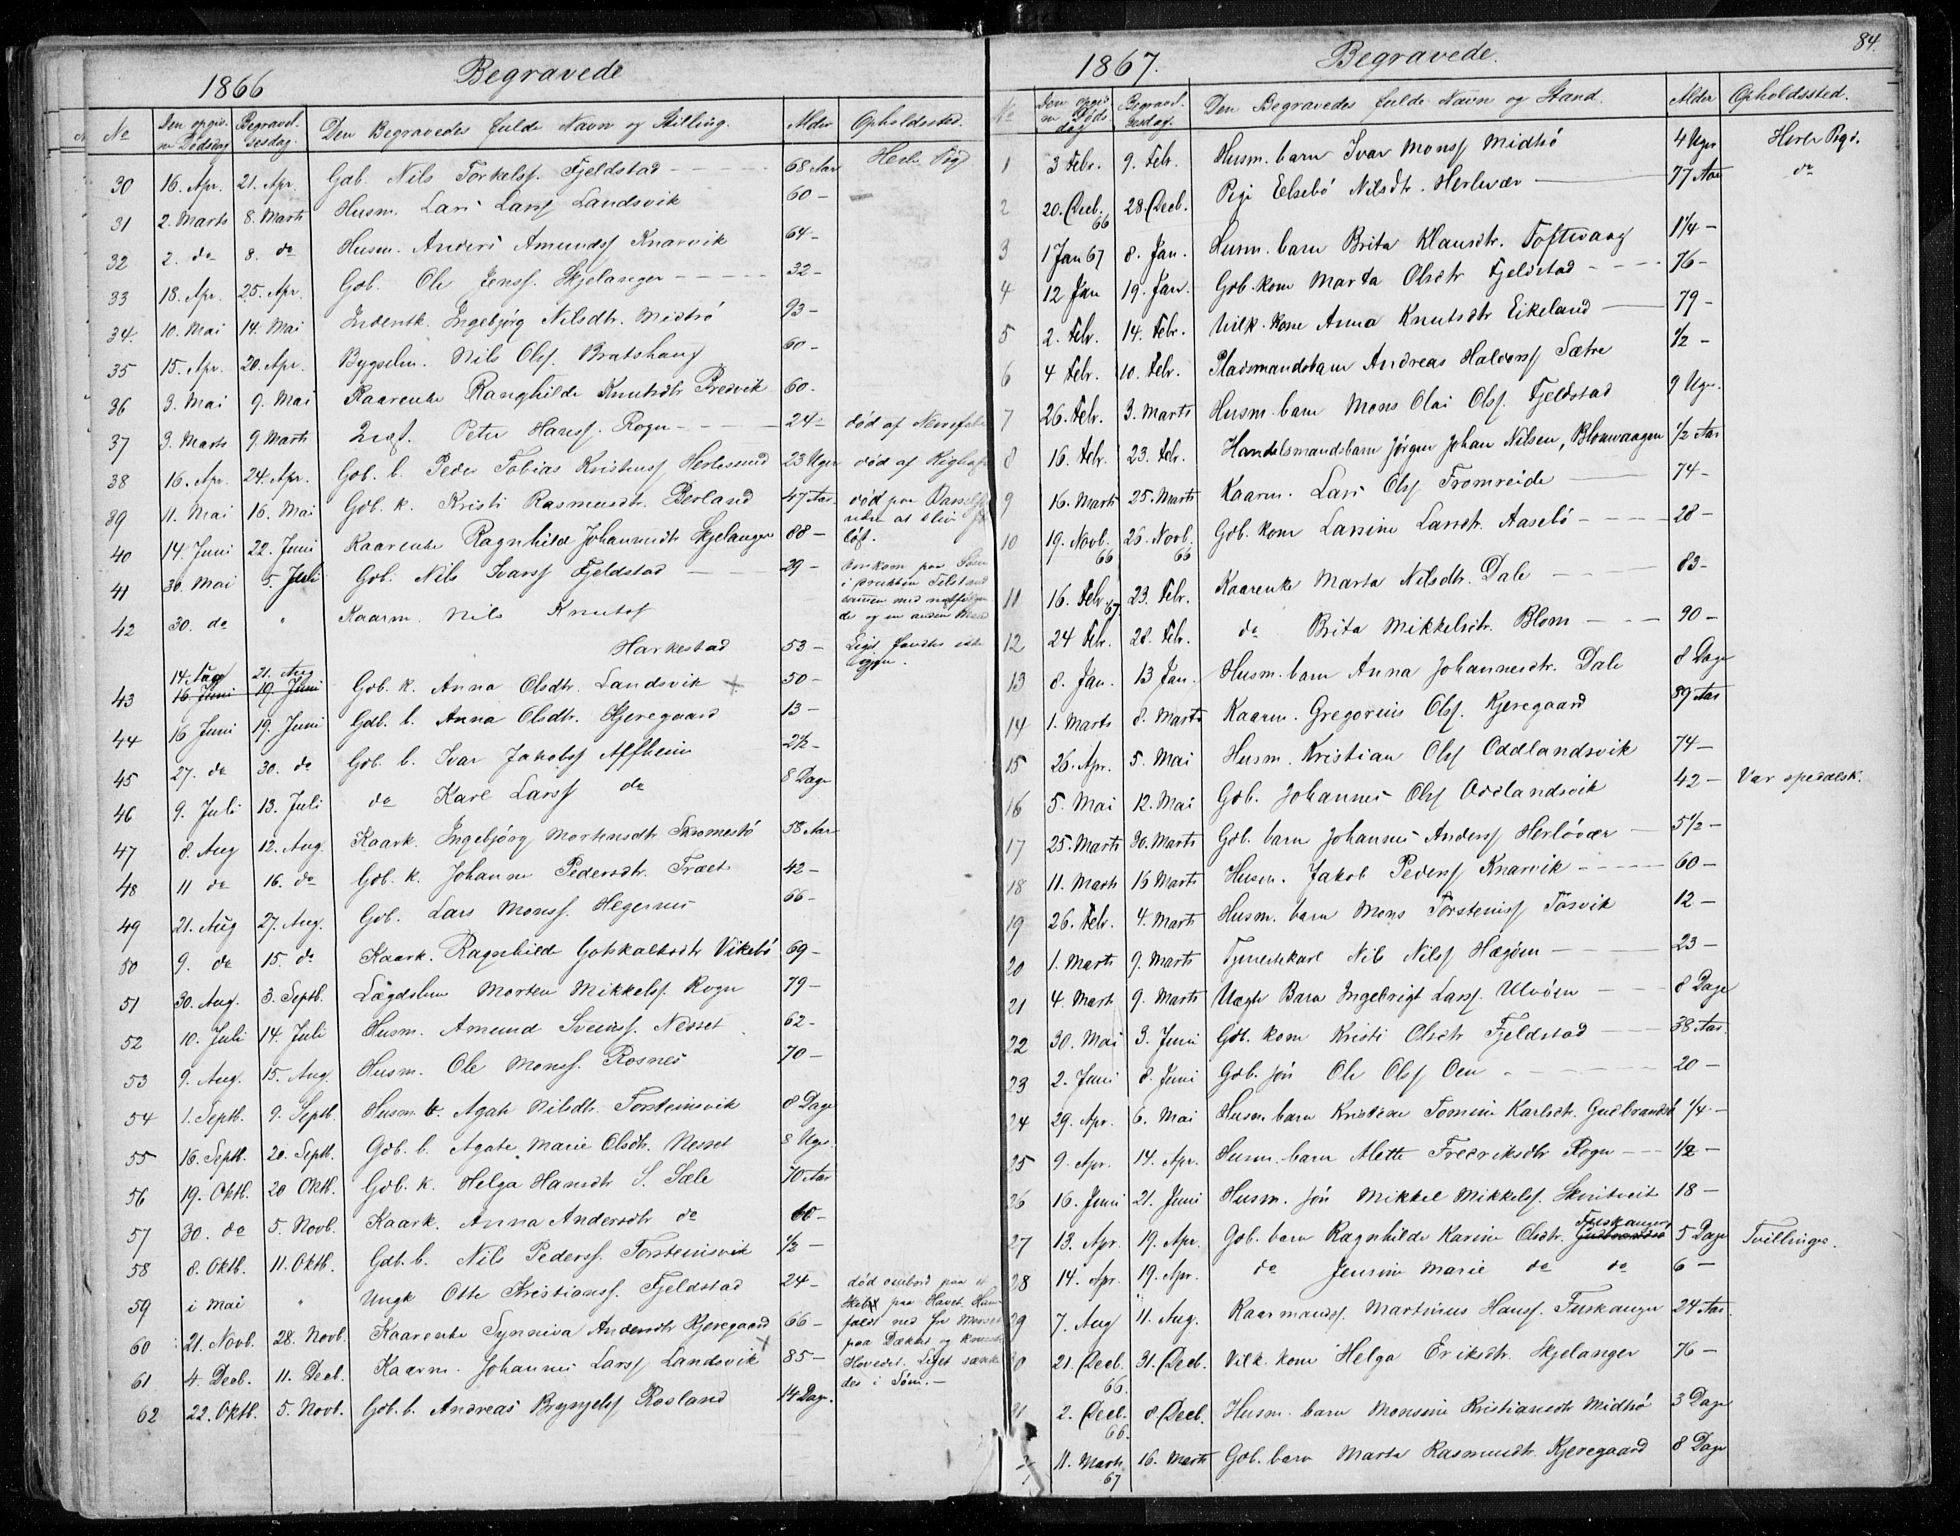 1866 Begravede
No Den opgivne Dødsdag Begravelsesdag. Den Begravedes fulde Navn og Stilling. Alder Opholdssted.
30 16. Apr. 21. Apr. Gdb. Nils Torkelss. Fjeldstad 68 Aar Herlø Pgd
31 2. Marts 8. Marts Husm. Lars Larss Landsvik 60 —
32 2. do 8. do Husm. Anders Amundss Knarvik 64 —
33 18. Apr. 25. Apr. Gdb. Ole Jenss. Skjelanger 32 —
34. 10. Mai 14. Mai Indentk. Ingebjørg Nilsdtr. Midtrø 93 —
35 15. Apr. 20. Apr. Bygselm. Nils Olss. Bratshaug 60 —
36 3. Mai 9. Mai Kaarenke Ranghilde Knutsdtr Bredvik 60.
37 3. Marts 9. Marts Peter Hanss. Rogn 24 — død af
38 16. Apr. 24. Apr. Gdb. b. Peder Tobias Kristenss Herlesund 23 Uger død af Kighoste
39 11. Mai 16. Mai Gdb. k. Kristi Rasmusdtr. Berland 47 Aar. død paa Barselseng
uden at blive for-
40 14. Juni 22. Juni Kaarenke Ragnhild Johannesdtr Skjelanger 88 — løst.
41 30. Mai 5. Juli Gdb. Nils Ivarss Fjeldstad 29 — omkom paa Søen
i drukken Tilstand
sammen med
42 30. do " Kaarm. Nils Knutss de og en anden Mand
Harkestad 53 — Liget fandtes ikke
igjen.
14. Aug 21. Aug
43 16 Juni 19 Juni Gdb. k. Anna Olsdtr. Landsvik 50 —
44 16 Juni 19. Juni Gdb. b. Anna Olsdtr. Kjeregaard 13 —
45 27. do 30. do Gdb. b. Ivar Jakobss Alfheim 2½ —
46 9. Juli 13. Juli do Karl Larss do 8 Dage
47 8. Aug 12. Aug. Kaark. Ingebjørg Mortensdtr Skromestø 58 Aar
48 11 do 16. do Gdb. k. Johanne Pedersdtr. Træet 42 —
49 21. Aug 27. Aug. Gdb. Lars Monss. Hegernes 66 —
50 9. do 15. do Kaark. Ragnhilde Gotskalksdtr Vikebø 69 —
51 30. Aug. 3. Septb. Lægdslem Morten Mikkelss. Rogn 79 —
52 10. Juli 14. Juli Husm. Amund Svenss. Nesset 62 —
53 9. Aug. 15. Aug. Husm. Ole Monss. Rosnes 70 —
54 1. Septb. 9. Septb. Husm. b. Agate Nilsdtr. Torsteinsvik 8 Dage
55 16. Septb. 20. Septb. Gdb. b. Agate Marie Olsdtr. Nesset 8 Ugr.
56 19. Oktb. 20 Oktb. Gdb. k. Helga Hansdtr S. Sæle 70 Aar
57 30. do 5. Novb. Kaark. Anna Andersdtr do 60 —
58 8. Oktb. 11. Oktb. Gdb. b. Nils Pederss. Torsteinsvik ½ —
59 i Mai " Ungk Otte Kristianss. Fjeldstad 24 — død ombord paa et
Skib paa Havet. Han
60 21. Novb. 28. Novb. Kaarenke Synniva Andersdtr Kjeregaard 66 — faldt ned fra Mærset
paa Dækket og knuste
61 4. Decb. 11. Decb. Kaarm. Johannes Larss Landsvik 85 — Hovedet. Liget sænke-
des i Søen. —
62 22. Oktb. 5. Novb. Gdb. b. Andreas Brynjelss Rosland 14 Dage.
84.
1867. Begravede.
No Den opgivne Dødsdag Begravelsesdag. Den Begravedes fulde Navn og Stand. Alder Opholdssted.
1 3 Febr. 9. Febr. Husm. barn Ivar Monss Midtrø 4 Uger Herlø Pgd.
2 20. Decb. 66 28. Decb. Pige Elsebø Nilsdtr. Herlevær 77 Aar do
3 1 Jan 67 8. Jan. Husm. barn Brita Klausdtr. Toftevaag 1¼ —
4 12 Jan 19. Jan. Gdb. kone Marta Olsdtr Fjeldstad 76 —
5 2. Febr. 14. Febr. Vilk. kone Anna Knutsdtr Eikeland 79 —
6 4 Febr. 10. Febr. Pladsmandsbarn Andreas Halvorss Sætre ½ —
7 26. Febr. 3. Marts Husm. barn Mons Olai Olss. Fjeldstad 9 Uger.
8 16. Febr. 23. Febr. Handelsmandsbarn Jørgen Johan Nilsen, Blomvaagen ½ Aar
9 16. Marts 25. Marts Kaarm. Lars Olss Tromreide 74 —
10 19. Novb. 66 26. Novb. 66 Gdb. kone Larsine Larsdtr. Aasebø 28 —
11 16. Febr 67 23. Febr. Kaarenke Marta Nilsdtr. Dale 83 —
12 24 Febr. 28. Febr. do Brita Mikkelsdtr. Blom 90 —
13 8. Jan. 13 Jan. Husm. barn Anna Johannesdtr. Dale 8 Dage
14 1. Marts 8. Marts Kaarm. Gregorius Olss. Kjeregaard 89 Aar
15 26. Apr. 5. Mai Husm. Kristian Olss Oddlandsvik 74 —
16 5. Mai 12. Mai Gdb. Johannes Olss Oddlandsvik 42 — Var spedalsk.
17 25. Marts 30. Marts Gdb. barn Johannes Anderss Herløvær 5½ —
18 11. Marts 16 Marts Husm. Jakob Pederss Knarvik 60 —
19 26. Febr. 4. Marts Husm. barn Mons Torsteinss Tosvik 12 —
20 1. Marts 9. Marts Tjenestekarl Nils Nilss Hægøen 23 —
21 4. Marts 9. Marts Uægte Barn Ingebrigt Larss. Ulvøen 8 Dage
22 30. Mai 3. Juni Gdb. kone Kristi Olsdtr Fjeldstad 38 Aar.
23 2. Juni 8. Juni Gdb. søn Ole Olss Oen 20 —
24 29. Apr. 6. Mai Husm. barn Kristine Tomine Karlsdtr. Gudbrandsø ¼ —
25 9. Apr. 14. Apr. Husm. barn Alette Fredriksdtr Rogn ½ —
26 16. Juni 21. Juni Husm. søn Mikkel Mikkelss. Skintveit 18 —
27 13. Apr. 19. Apr. Gdb. barn Ragnhilde Karine Olsdtr. Gudbrandsø Fuskanger 5 Dage Tvillinger.
28 14. Apr. 19. Apr. do Jensine Marie do do 6 —
29 7. Aug 11. Aug. Kaarmandss. Martinus Hanss. Fuskanger 24 Aar.
30 21. Decb. 66. 31. Decb. Vilk. kone Helga Eriksdtr. Skjelanger 76 —
31 2. Decb. 66. 8. Decb. Husm. barn Monsine Kristiansdtr Midtrø 3 Dage
11. Marts 67 16. Marts Gdb. barn Marta Rasmusdtr. Kjeregaard 8 Dage